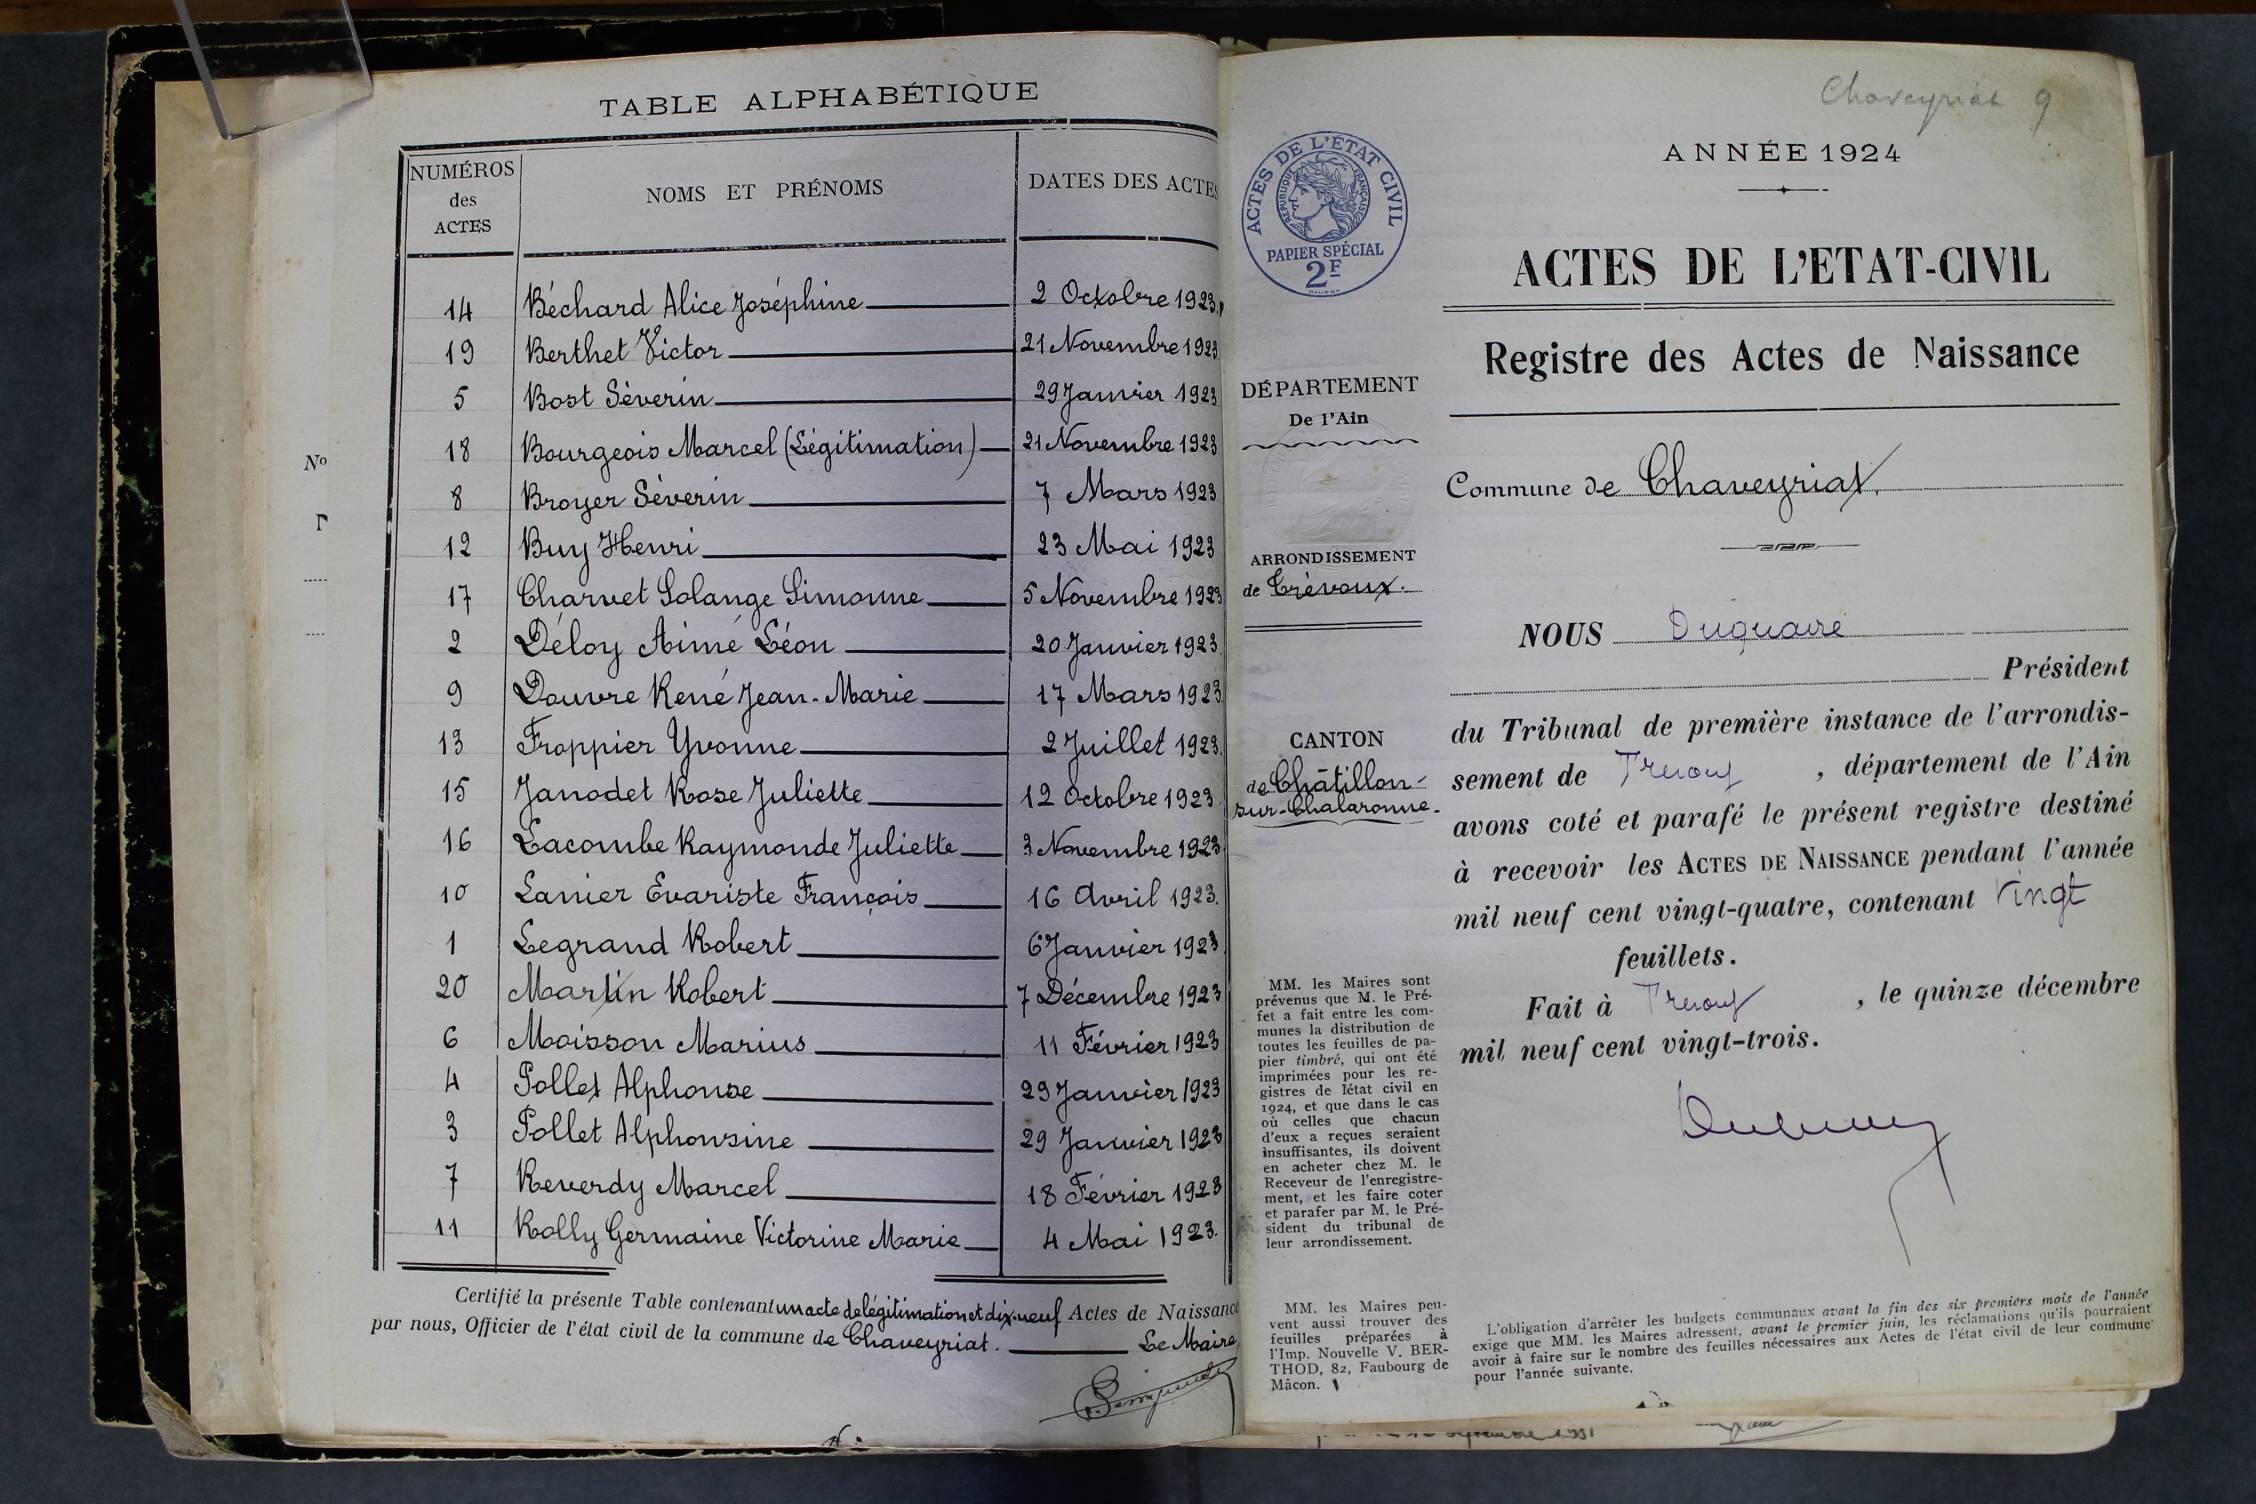 TABLE ALPHABÉTIQUE
NUMÉROS des ACTES NOMS ET PRÉNOMS DATES DES ACTES
14 Béchard Alice Joséphine 2 Octobre 1923.
19 Berthet Victor 21 Novembre 1923
5 Bost Séverin 29 Janvier 1923
18 Bourgeois Marcel (Légitimation) 21 Novembre 1923
8 Broyer Séverin 7 Mars 1923
12 Buy Henri 23 Mai 1923
17 Charvet Solange Simonne 5 Novembre 1923
2 Déloy Aimé Léon 20 Janvier 1923.
9 Douvre René Jean-Marie 17 Mars 1923
13 Froppier Yvonne 2 Juillet 1923.
15 Janodet Rose Juliette 12 Octobre 1923.
16 Lacombe Raymonde Juliette 3 Novembre 1923
10 Lanier Evariste François 16 Avril 1923.
1 Legrand Robert 6 Janvier 1923.
20 Martin Robert 7 Décembre 1923
6 Moisson Marius 11 Février 1923
4 Pollet Alphonse 29 Janvier 1923
3 Pollet Alphonsine 29 Janvier 1923
7 Reverdy Marcel 18 Février 1923
11 Rolly Germaine Victorine Marie 4 Mai 1923.
Certifié la présente Table contenant un acte de légitimation et dix-neuf Actes de Naissance
par nous, Officier de l'état civil de la commune de Chaveyriat. Le Maire,
No
Chaveyriat 9
ANNÉE 1924
ACTES DE L'ÉTAT CIVIL
RÉPUBLIQUE FRANÇAISE
PAPIER SPÉCIAL
2F
ACTES DE L'ETAT-CIVIL
Registre des Actes de Naissance
DÉPARTEMENT
De l'Ain
Commune de Chaveyriat.
ARRONDISSEMENT
de Trévoux.
CANTON
de Châtillon-
sur-Chalaronne.
NOUS Duquaire
Président
du Tribunal de première instance de l'arrondis-
sement de Trevoux, département de l'Ain
avons coté et parafé le présent registre destiné
à recevoir les ACTES DE NAISSANCE pendant l'année
mil neuf cent vingt-quatre, contenant Vingt
feuillets.
Fait à Trevoux, le quinze décembre
mil neuf cent vingt-trois.
MM. les Maires sont
prévenus que M. le Pré-
fet a fait entre les com-
munes la distribution de
toutes les feuilles de pa-
pier timbré, qui ont été
imprimées pour les re-
gistres de l'état civil en
1924, et que dans le cas
où celles que chacun
d'eux a reçues seraient
insuffisantes, ils doivent
en acheter chez M. le
Receveur de l'enregistre-
ment, et les faire coter
et parafer par M. le Pré-
sident du tribunal de
leur arrondissement.
MM. les Maires peu-
vent aussi trouver des
feuilles préparées à
l'Imp. Nouvelle V. BER-
THOD, 82, Faubourg de
Mâcon.
L'obligation d'arrêter les budgets communaux avant la fin des six premiers mois de l'année
exige que MM. les Maires adressent, avant le premier juin, les réclamations qu'ils pourraient
avoir à faire sur le nombre des feuilles nécessaires aux Actes de l'état civil de leur commune
pour l'année suivante.